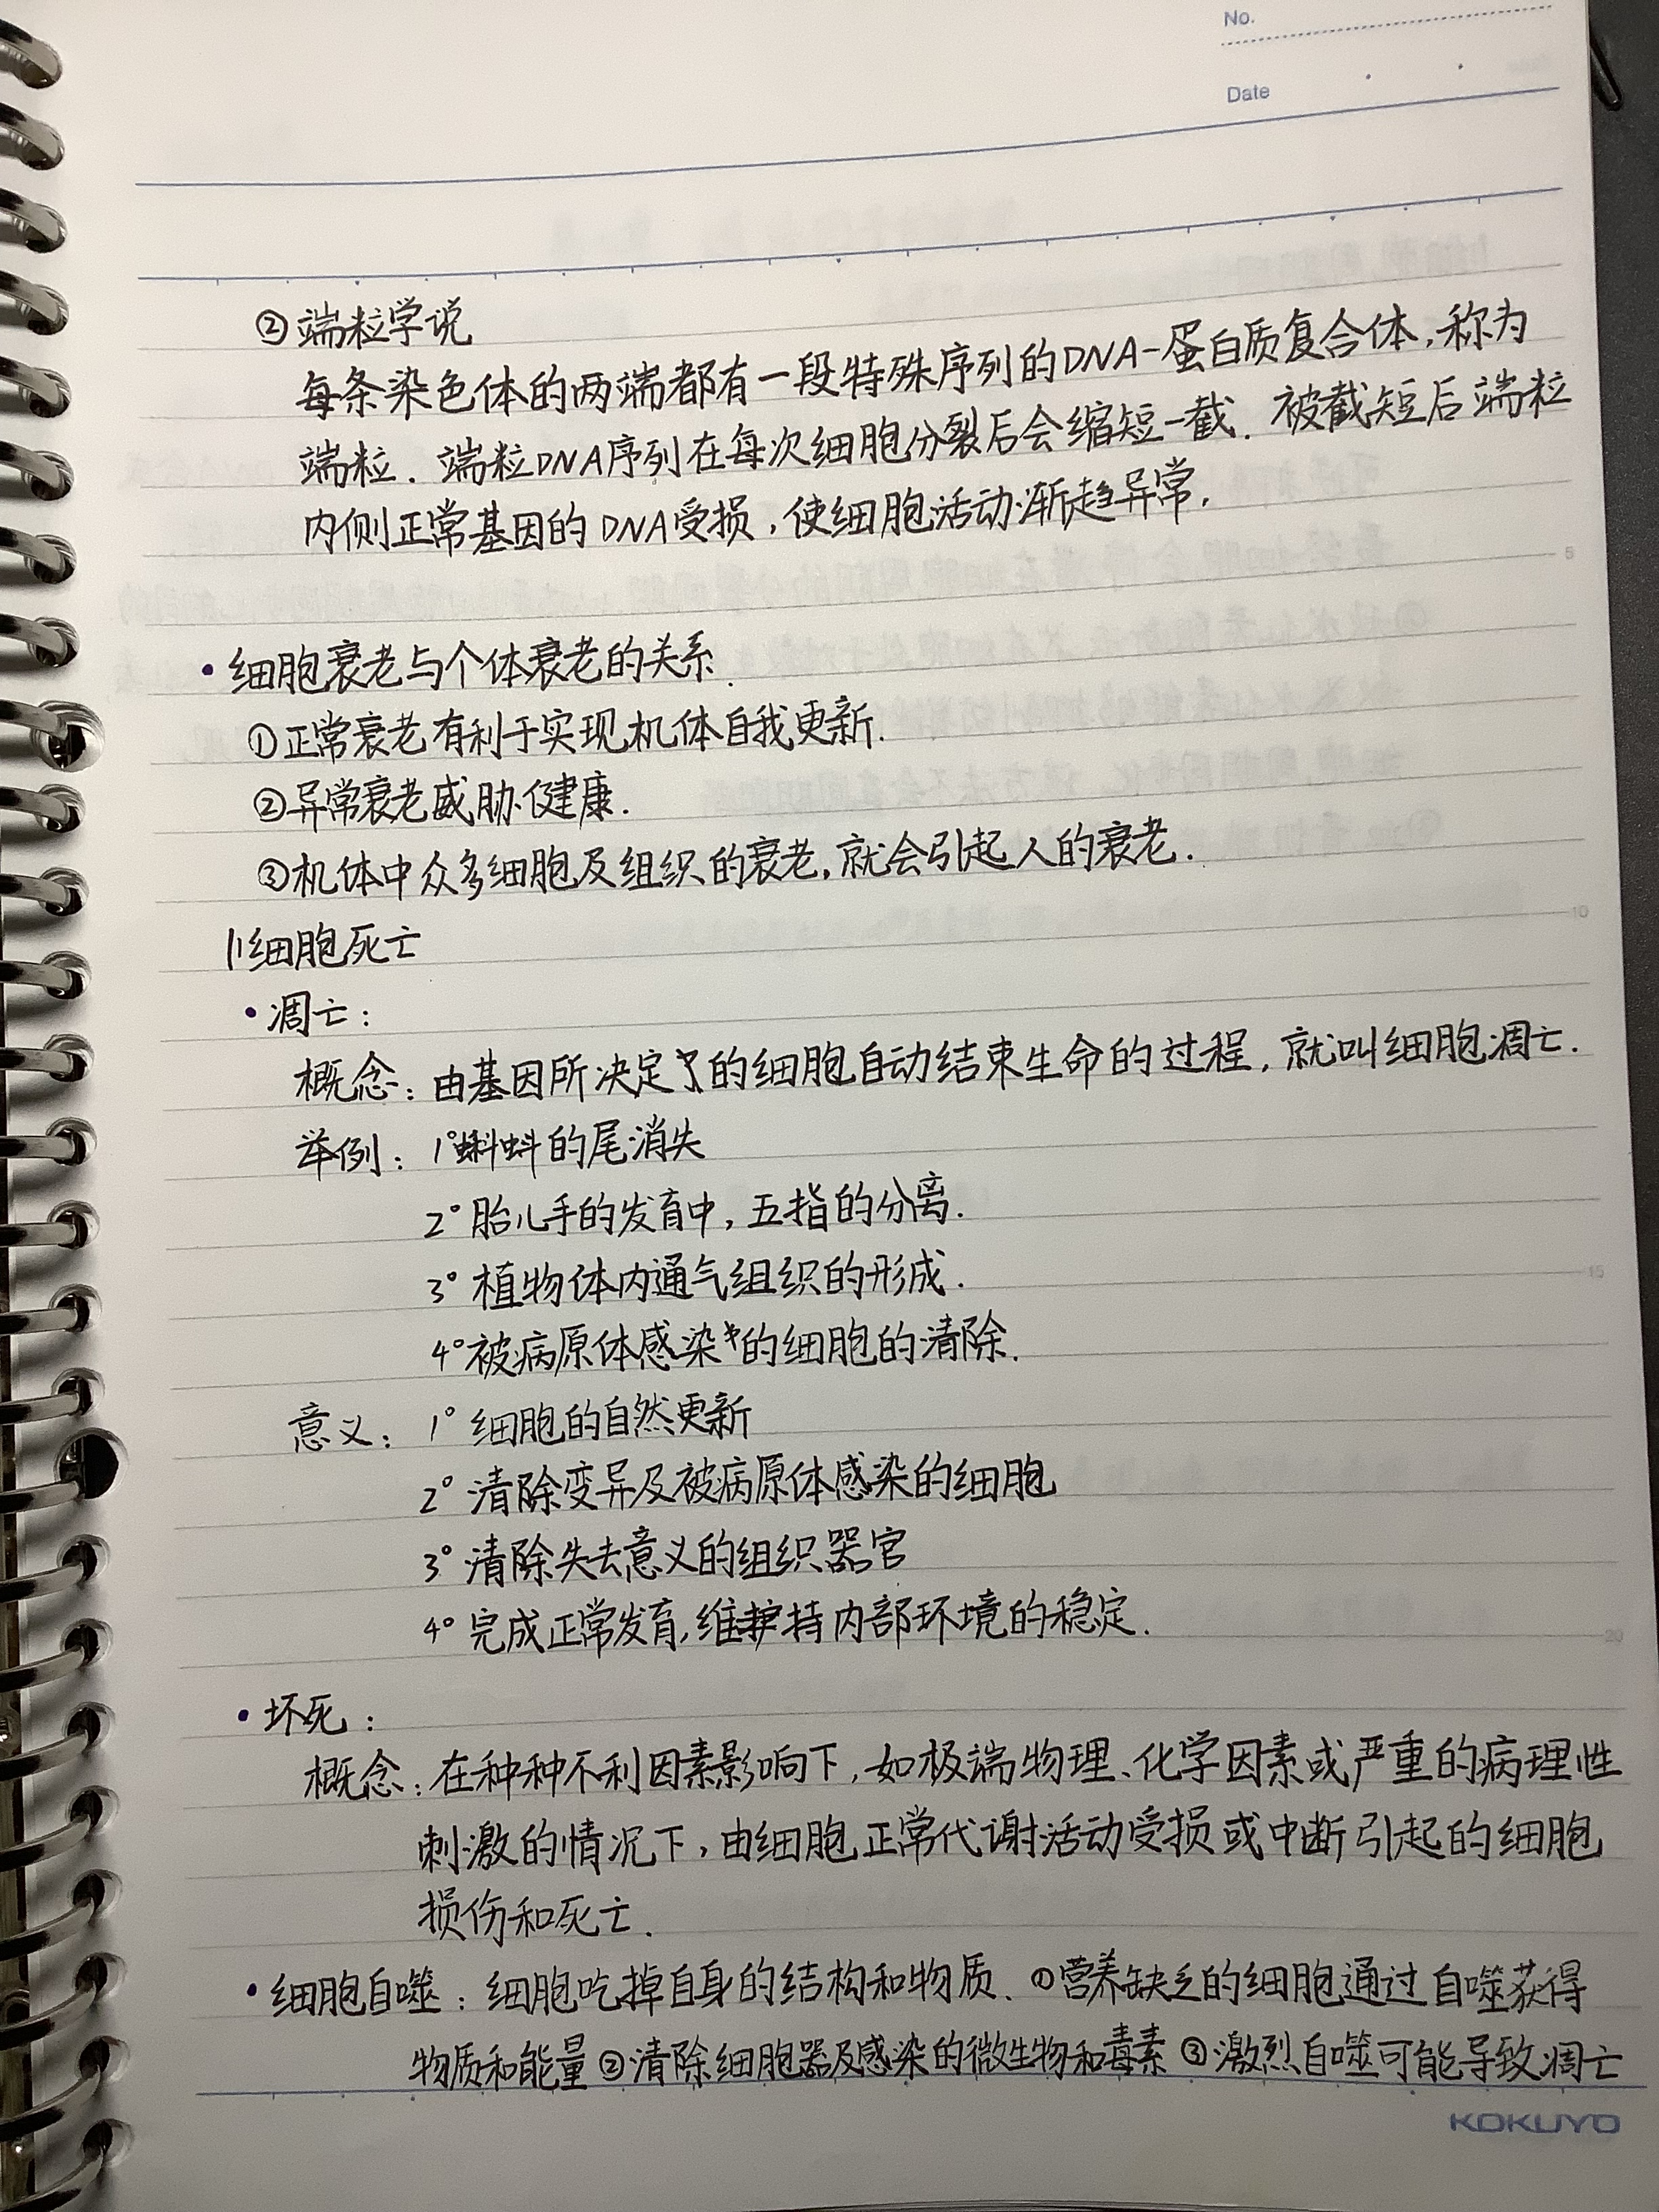 No.
Date
②端粒学说
每条染色体的两端都有一段特殊序列的DNA-蛋白质复合体,称为
端粒.端粒DNA序列在每次细胞分裂后会缩短一截.被截短后端粒
内侧正常基因的DNA受损,使细胞活动渐趋异常.
5
•细胞衰老与个体衰老的关系.
①正常衰老有利于实现机体自我更新.
②异常衰老威胁健康.
③机体中众多细胞及组织的衰老,就会引起人的衰老.
10
11细胞死亡
•凋亡:
概念:由基因所决定的细胞自动结束生命的过程,就叫细胞凋亡.
举例:1°蝌蚪的尾消失
2°胎儿手的发育中,五指的分离.
3°植物体内通气组织的形成.
15
4°被病原体感染的细胞的清除.
意义:1°细胞的自然更新
2°清除变异及被病原体感染的细胞
3°清除失去意义的组织器官
4°完成正常发育,维持内部环境的稳定.
20
•坏死:
概念:在种种不利因素影响下,如极端物理、化学因素或严重的病理性
刺激的情况下,由细胞正常代谢活动受损或中断引起的细胞
损伤和死亡.
•细胞自噬:细胞吃掉自身的结构和物质.①营养缺乏的细胞通过自噬获得
物质和能量②清除细胞器及感染的微生物和毒素③激烈自噬可能导致凋亡
KOKUYO